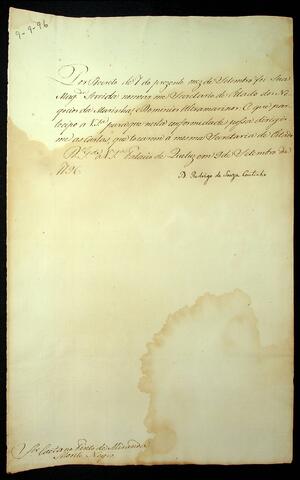 9-9-96
Por Decreto de 7 do prezente mez de Setembro foi Sua
Mag.e Servida nomear me Secretario de Estado dos Ne-
gocios da Marinha, e Dominios Ultramarinos: O que par-
ticipo a V.S.a para que nesta conformidade possa dirigir-
me as Cartas, que tocarem á mesma Secretaria de Estado.
D.s g.de a V.S.a Palacio de Queluz em 9 de Setembro de
1796.
D. Rodrigo de Souza Coutinho
S.r Caetano Pinto de Miranda
Monte Negro